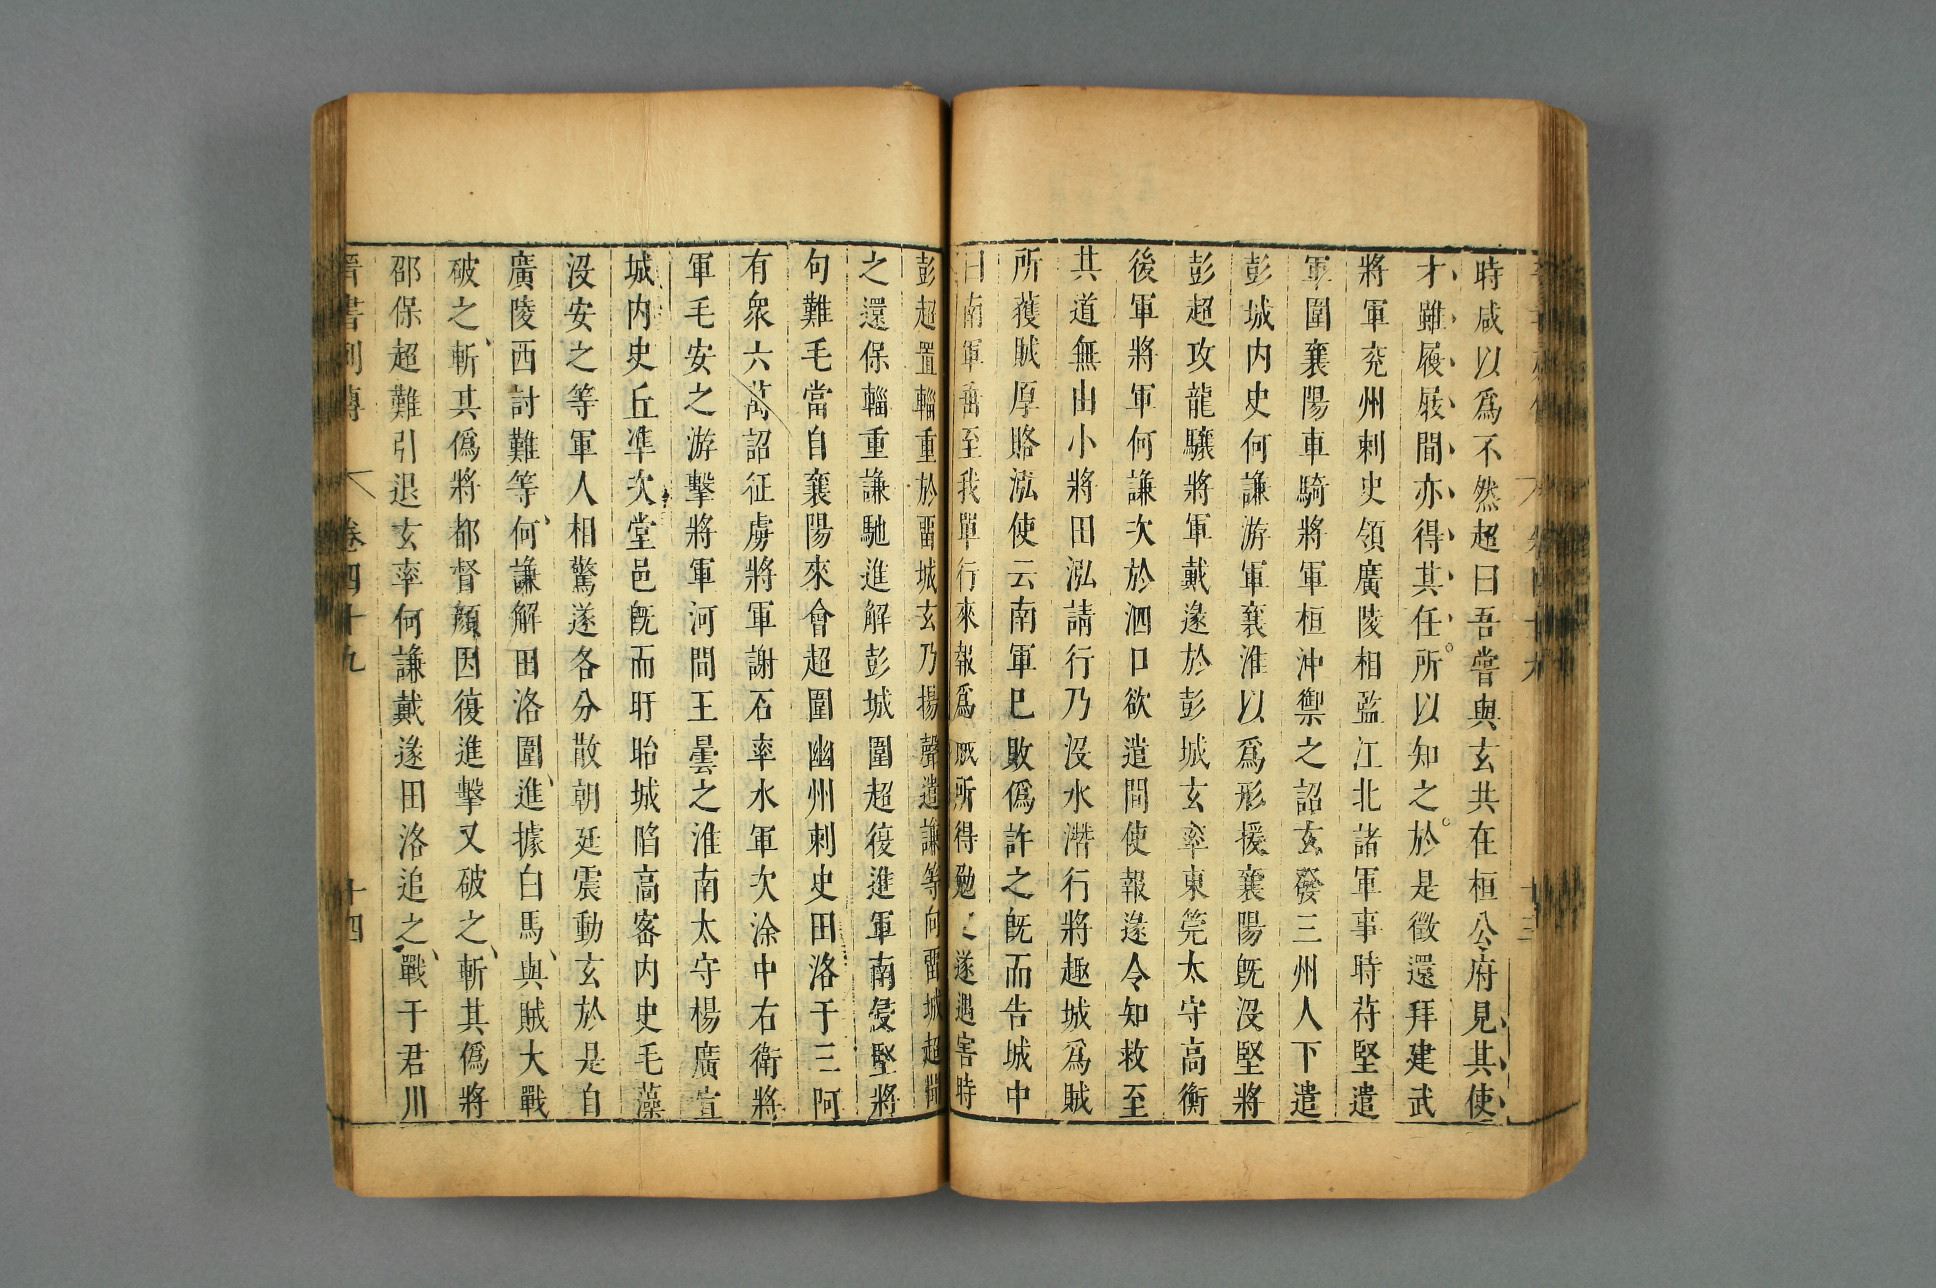 時咸以爲不然超曰吾嘗與玄共在桓公府見其使
才雖履屐間亦得其任所以知之於是徵還拜建武
將軍兖州刺史領廣陵相監江北諸軍事時苻堅遣
軍圍襄陽車騎將軍桓沖禦之詔玄發三州人下遣
彭城内史何謙游軍襄淮以爲形援襄陽旣沒堅將
彭超攻龍驤將軍戴遂於彭城玄率東莞太守高衡
後軍將軍何謙次於泗口欲遣間使報遂令知救至
其道無由小將田泓請行乃沒水潛行將趣城爲賊
所獲賊厚賂泓使云南軍已敗僞許之旣而告城中
曰南軍垂至我單行來報爲賊所得勉之遂遇害時
彭超置輜重於畱城玄乃揚聲遣謙等向畱城超聞
之還保輜重謙馳進解彭城圍超復進軍南侵堅將
句難毛當自襄陽來會超圍幽州刺史田洛于三阿
有衆六萬詔征虜將軍謝石率水軍次涂中右衛將
軍毛安之游擊將軍河間王曇之淮南太守楊廣宣
城内史丘準次堂邑旣而盱眙城陷高密内史毛藻
沒安之等軍人相驚遂各分散朝廷震動玄於是自
廣陵西討難等何謙解田洛圍進據白馬與賊大戰
破之斬其僞將都督顏因復進擊又破之斬其僞將
邵保超難引退玄率何謙戴遂田洛追之戰于君川
晉書列傳 卷四十九 十四